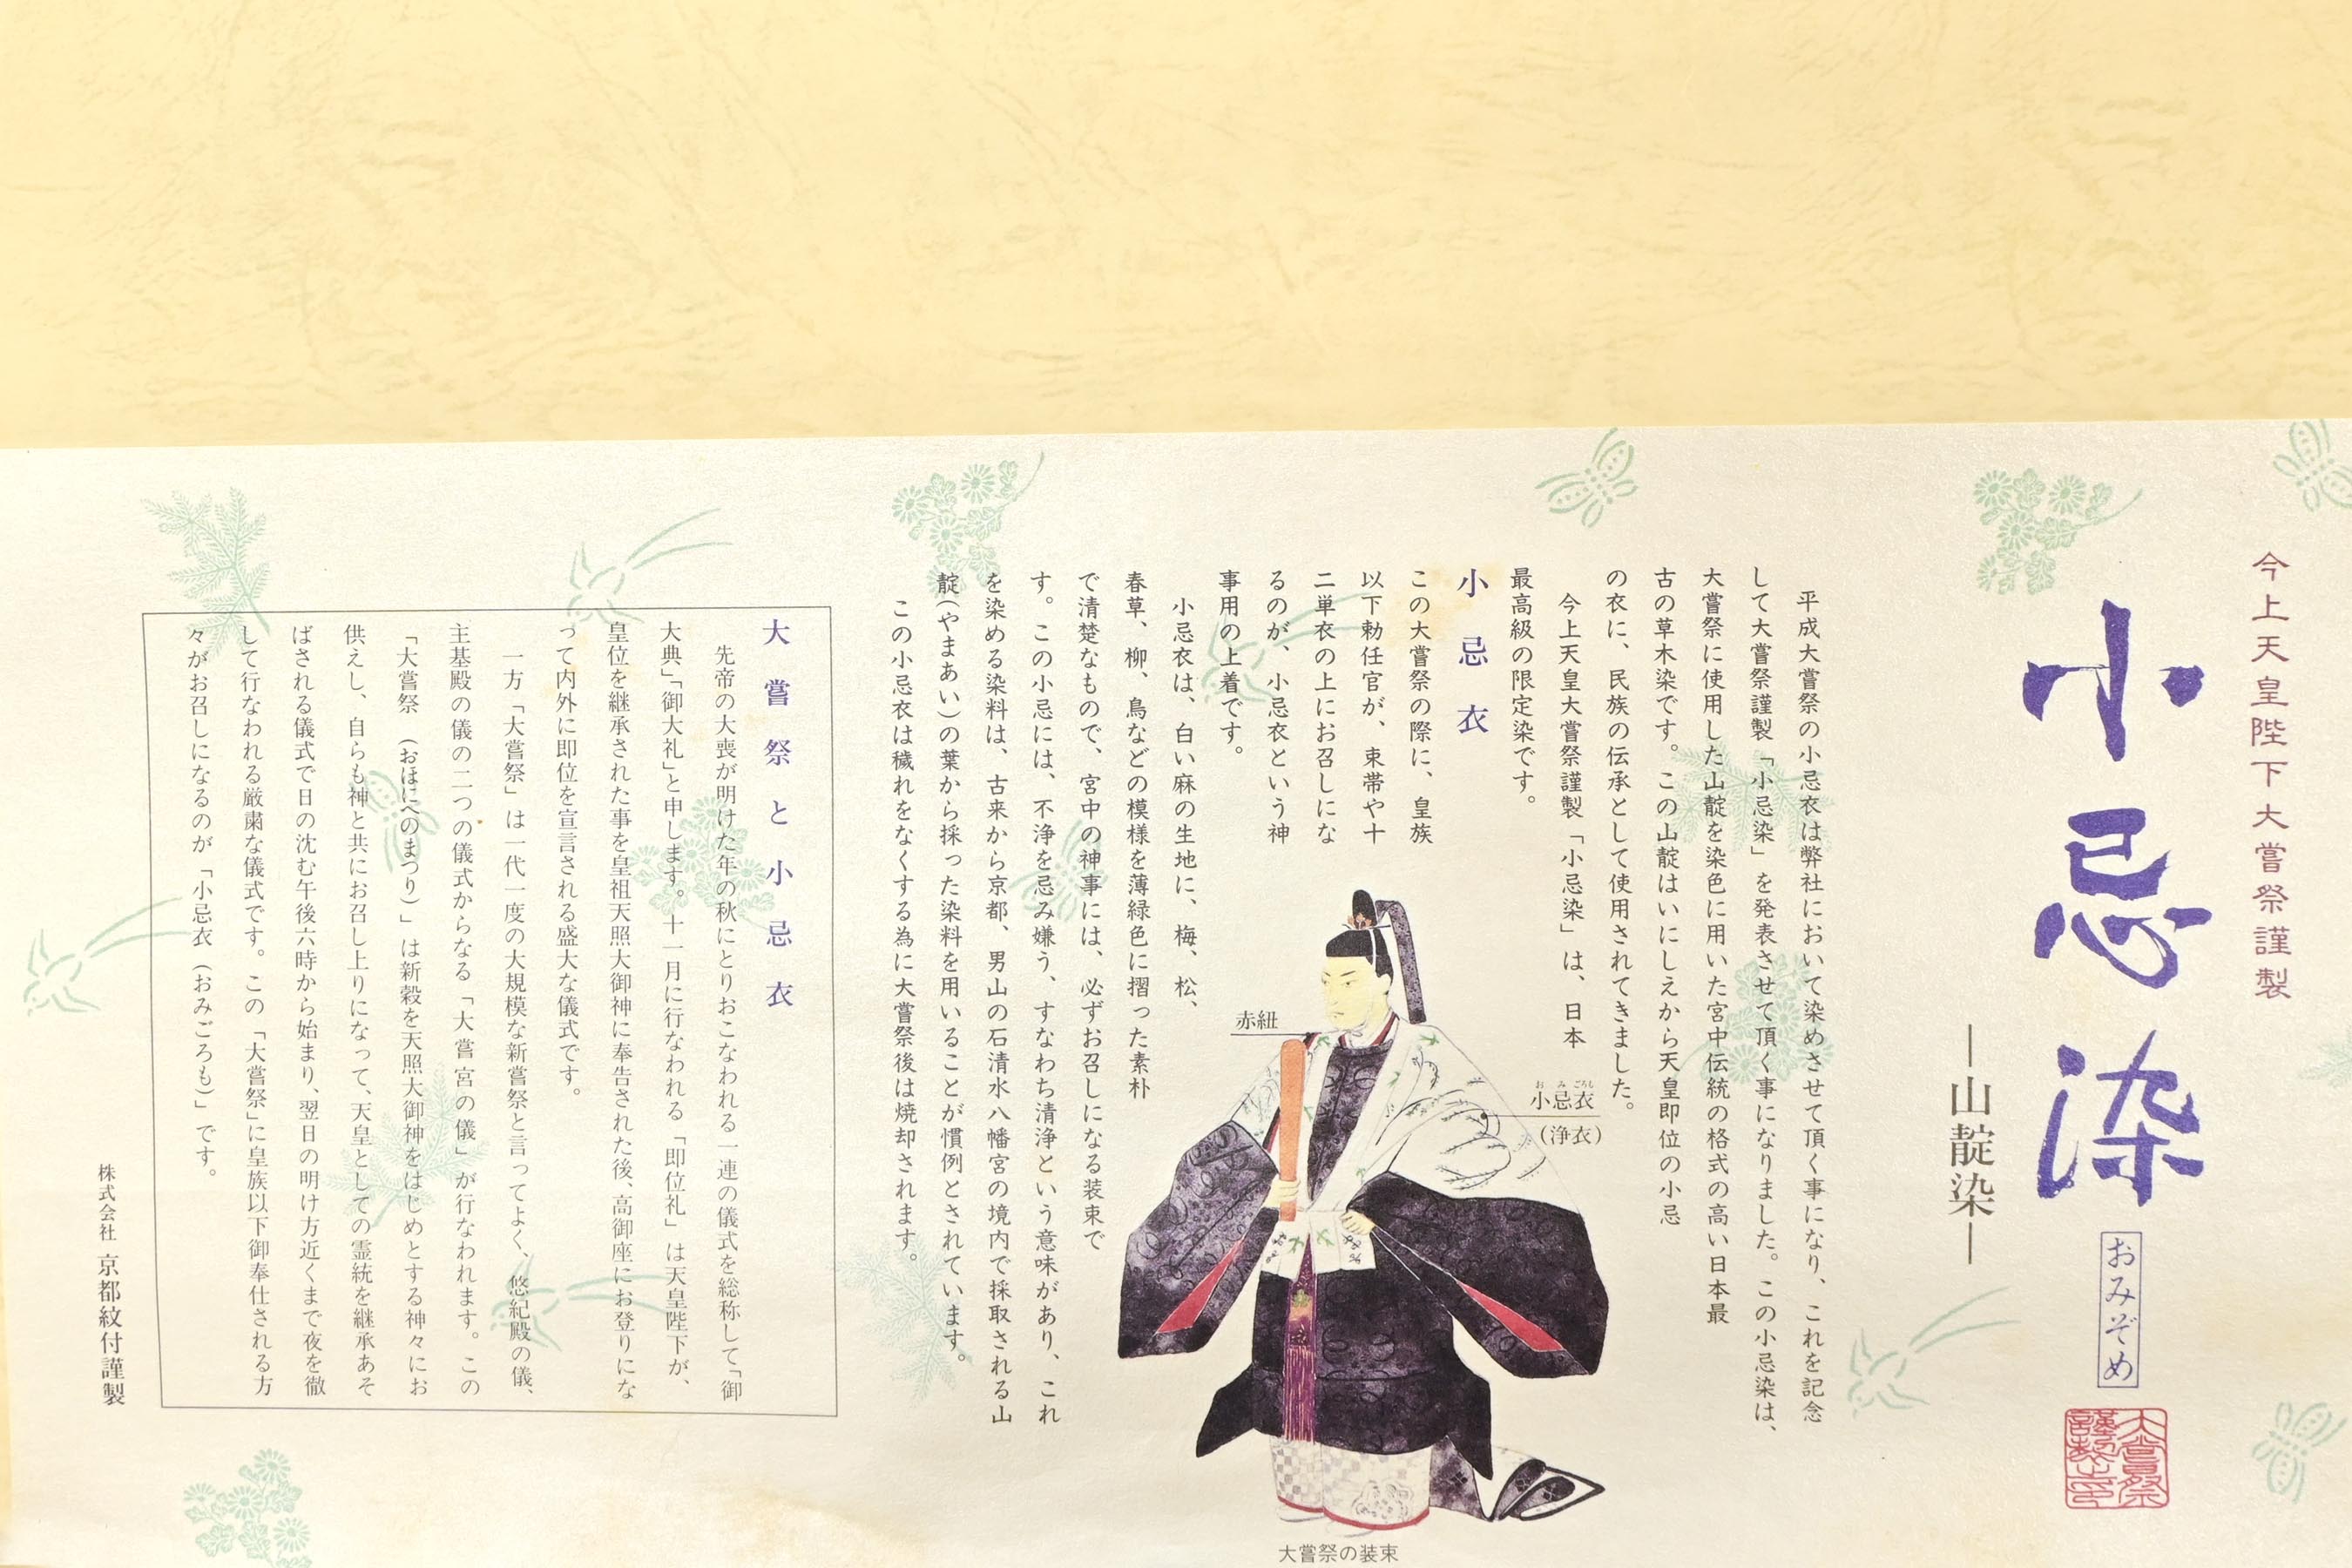 今上天皇陛下大嘗祭謹製
小忌染
おみぞめ
大嘗祭
謹製之印
―山靛染―
平成大嘗祭の小忌衣は弊社において染めさせて頂く事になり、これを記念
して大嘗祭謹製「小忌染」を発表させて頂く事になりました。この小忌染は、
大嘗祭に使用した山靛を染色に用いた宮中伝統の格式の高い日本最
古の草木染です。この山靛はいにしえから天皇即位の小忌
の衣に、民族の伝承として使用されてきました。
今上天皇大嘗祭謹製「小忌染」は、日本
最高級の限定染です。
小忌衣
この大嘗祭の際に、皇族
以下勅任官が、束帯や十
二単衣の上にお召しにな
るのが、小忌衣という神
事用の上着です。
小忌衣は、白い麻の生地に、梅、松、
春草、柳、鳥などの模様を薄緑色に摺った素朴
で清楚なもので、宮中の神事には、必ずお召しになる装束で
す。この小忌には、不浄を忌み嫌う、すなわち清浄という意味があり、これ
を染める染料は、古来から京都、男山の石清水八幡宮の境内で採取される山
靛(やまあい)の葉から採った染料を用いることが慣例とされています。
この小忌衣は穢れをなくする為に大嘗祭後は焼却されます。
赤紐
おみごろも
小忌衣
(浄衣)
大嘗祭の装束
大嘗祭と小忌衣
先帝の大喪が明けた年の秋にとりおこなわれる一連の儀式を総称して「御
大典」「御大礼」と申します。十一月に行なわれる「即位礼」は天皇陛下が、
皇位を継承された事を皇祖天照大御神に奉告された後、高御座にお登りにな
って内外に即位を宣言される盛大な儀式です。
一方「大嘗祭」は一代一度の大規模な新嘗祭と言ってよく、悠紀殿の儀、
主基殿の儀の二つの儀式からなる「大嘗宮の儀」が行なわれます。この
「大嘗祭(おほにへのまつり)」は新穀を天照大御神をはじめとする神々にお
供えし、自らも神と共にお召し上りになって、天皇としての霊統を継承あそ
ばされる儀式で日の沈む午後六時から始まり、翌日の明け方近くまで夜を徹
して行なわれる厳粛な儀式です。この「大嘗祭」に皇族以下御奉仕される方
々がお召しになるのが「小忌衣(おみごろも)」です。
株式会社 京都紋付謹製